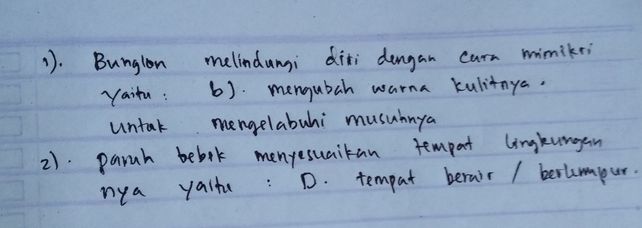 1). Bunglon melindungi diri dengan cara mimikri
yaitu : b). mengubah warna kulitnya.
untuk mengelabuhi musuhnya
2). paruh bebek menyesuaikan tempat lingkungan
nya yaitu : D. tempat berair / berlumpur.